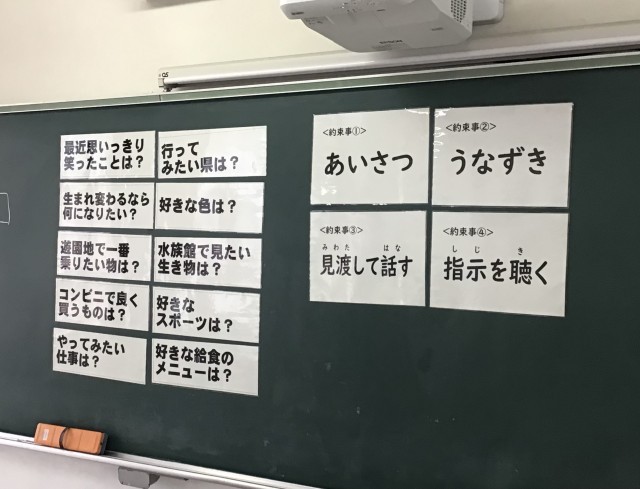 最近思いっきり
笑ったことは？
行って
みたい県は？
生まれ変わるなら
何になりたい？
好きな色は？
遊園地で一番
乗りたい物は？
水族館で見たい
生き物は？
コンビニで良く
買うものは？
好きな
スポーツは？
やってみたい
仕事は？
好きな給食の
メニューは？
<約束事①>
あいさつ
<約束事②>
うなずき
<約束事③>
みわた はな
見渡して話す
<約束事④>
しじ き
指示を聴く